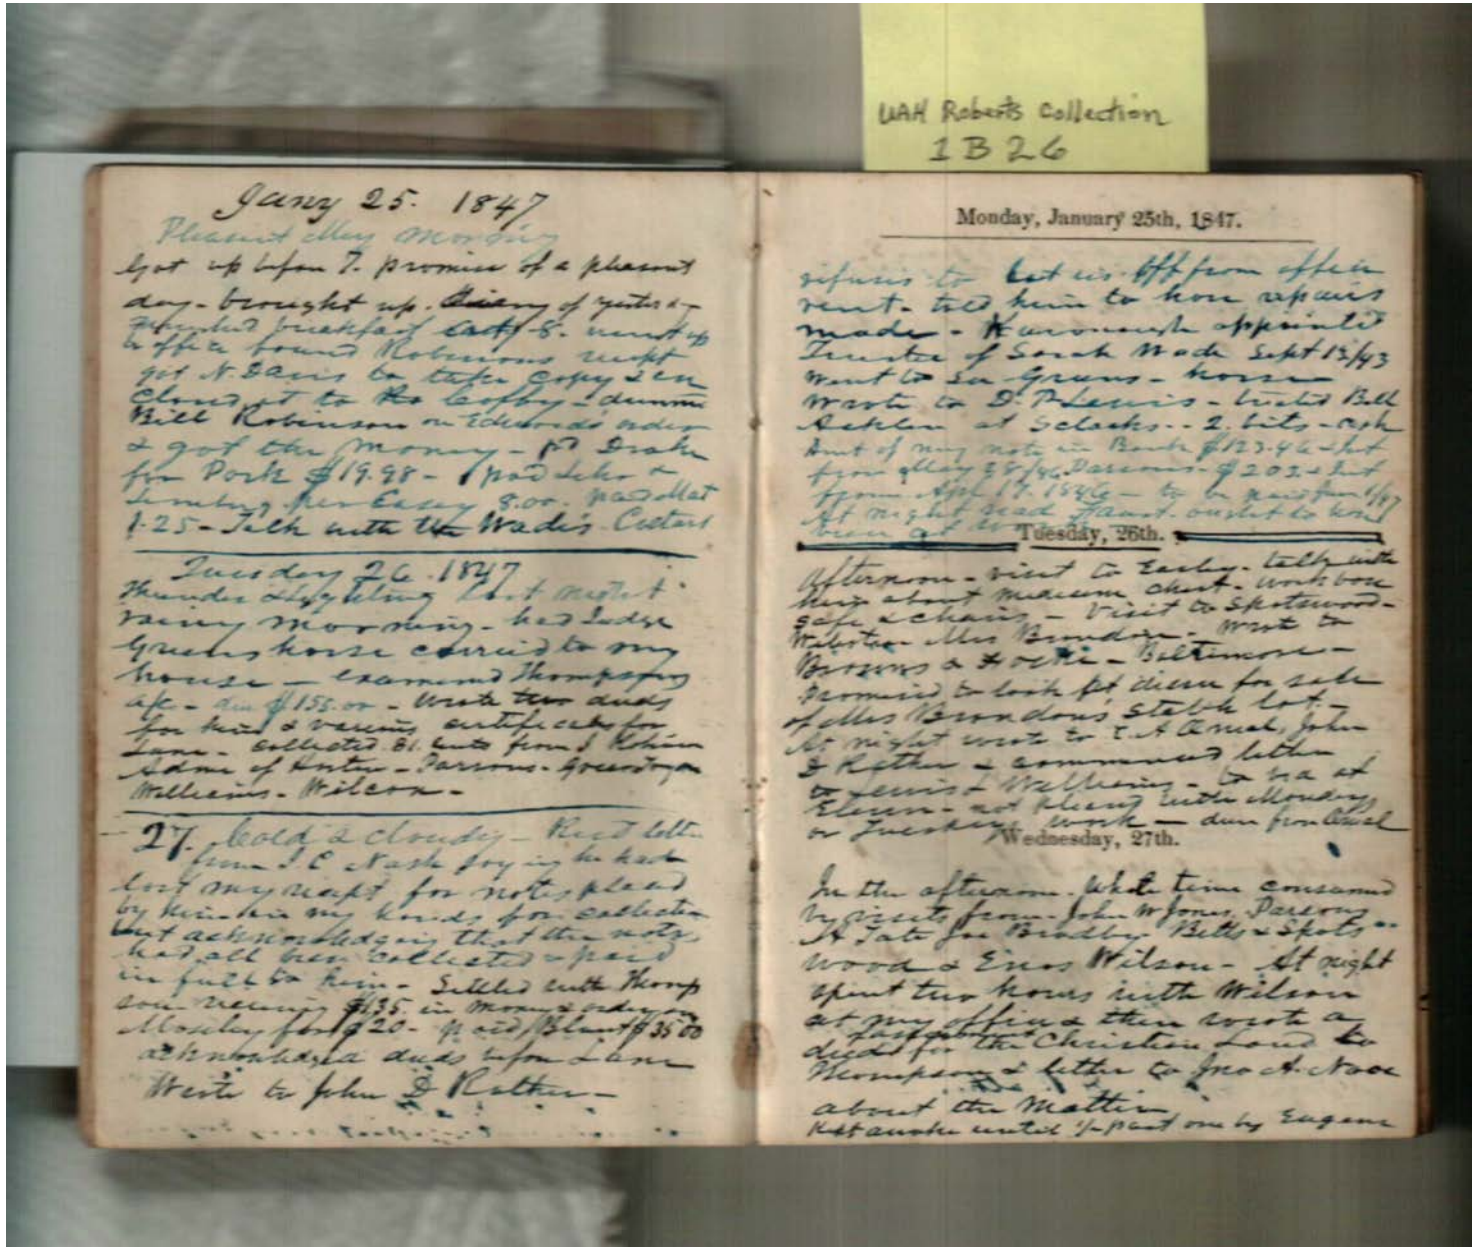 UAH Roberts Collection
1B26
Jany 25. 1847
Pleasant May morning
Got up before 7. promise of a pleasant
day - brought up diary of yesterday
finished breakfast 8. went up
to office found Robinsons recpt
got N. Davis to take copy & en
closed it to Coffey -
Bill Robinson on Edwards order
& got the money - pd Drake
for Pork $19.98 - paid
8.00. paid Mat
1.25 - Talk with the Wades
Tuesday 26. 1847
Thunder & lightning last night
rainy morning - had Judge
Greens horse carried to my
house - examined Thompsons
a/c - due $155.00 - wrote two deeds
for him & various certificates for
Lane - collected 81. cents from J Robinson
Admr of - Parsons -
Williams - Wilson -
27. Cold & cloudy - Recd letter
from J C Nash saying he had
lost my recpt for notes placed
by him in my hands for collection
but acknowledging that the notes
had all been collected & paid
in full to him - Settled with Thomp
son $135 in money & order on
Moseley for $20 - paid Blunt $35 00
acknowledged deeds before Lane
Wrote to John D Rather -
Monday, January 25th, 1847.
refuses to let us off from office
rent - told him to have repairs
made - Kavanaugh appointed
Trustee of Sarah Wade Sept 13/43
went to see Greens - horse
Wrote to D. P. Lewis - Bill
at - 2 bits - cash
Amt of my note in Bank $123.46 & Int
from May 28/46 Parsons - $203 & Int
from Apl 17. 1846 - to be paid
At night read Faust. ought to have
been at
Tuesday, 26th.
Afternoon - visit to Easley - talk with
him about medicine chest - work box
safe & chairs - Visit to Spotswood -
Webster - Mrs Brandon - wrote to
Browns & - Baltimore -
promised to look at decree for sale
of Mrs Brandon's stable lot -
At night wrote to John
D Rather & commenced letter
to Lewis & Williams - to bed at
Eleven - not pleasd with Mondays
or Tuesdays work -
Wednesday, 27th.
In the afternoon. Whole time consumed
by visits from - John W Jones, Parsons
Tate Joe Bradley Betts & Spots-
wood & Enos Wilson - At night
spent two hours with Wilson
at my office & then wrote a
deed for the Christian Land to
Thompson & letter to Jno A. Nooe
about the Matter
Kept awake until ½ past one by Eugene